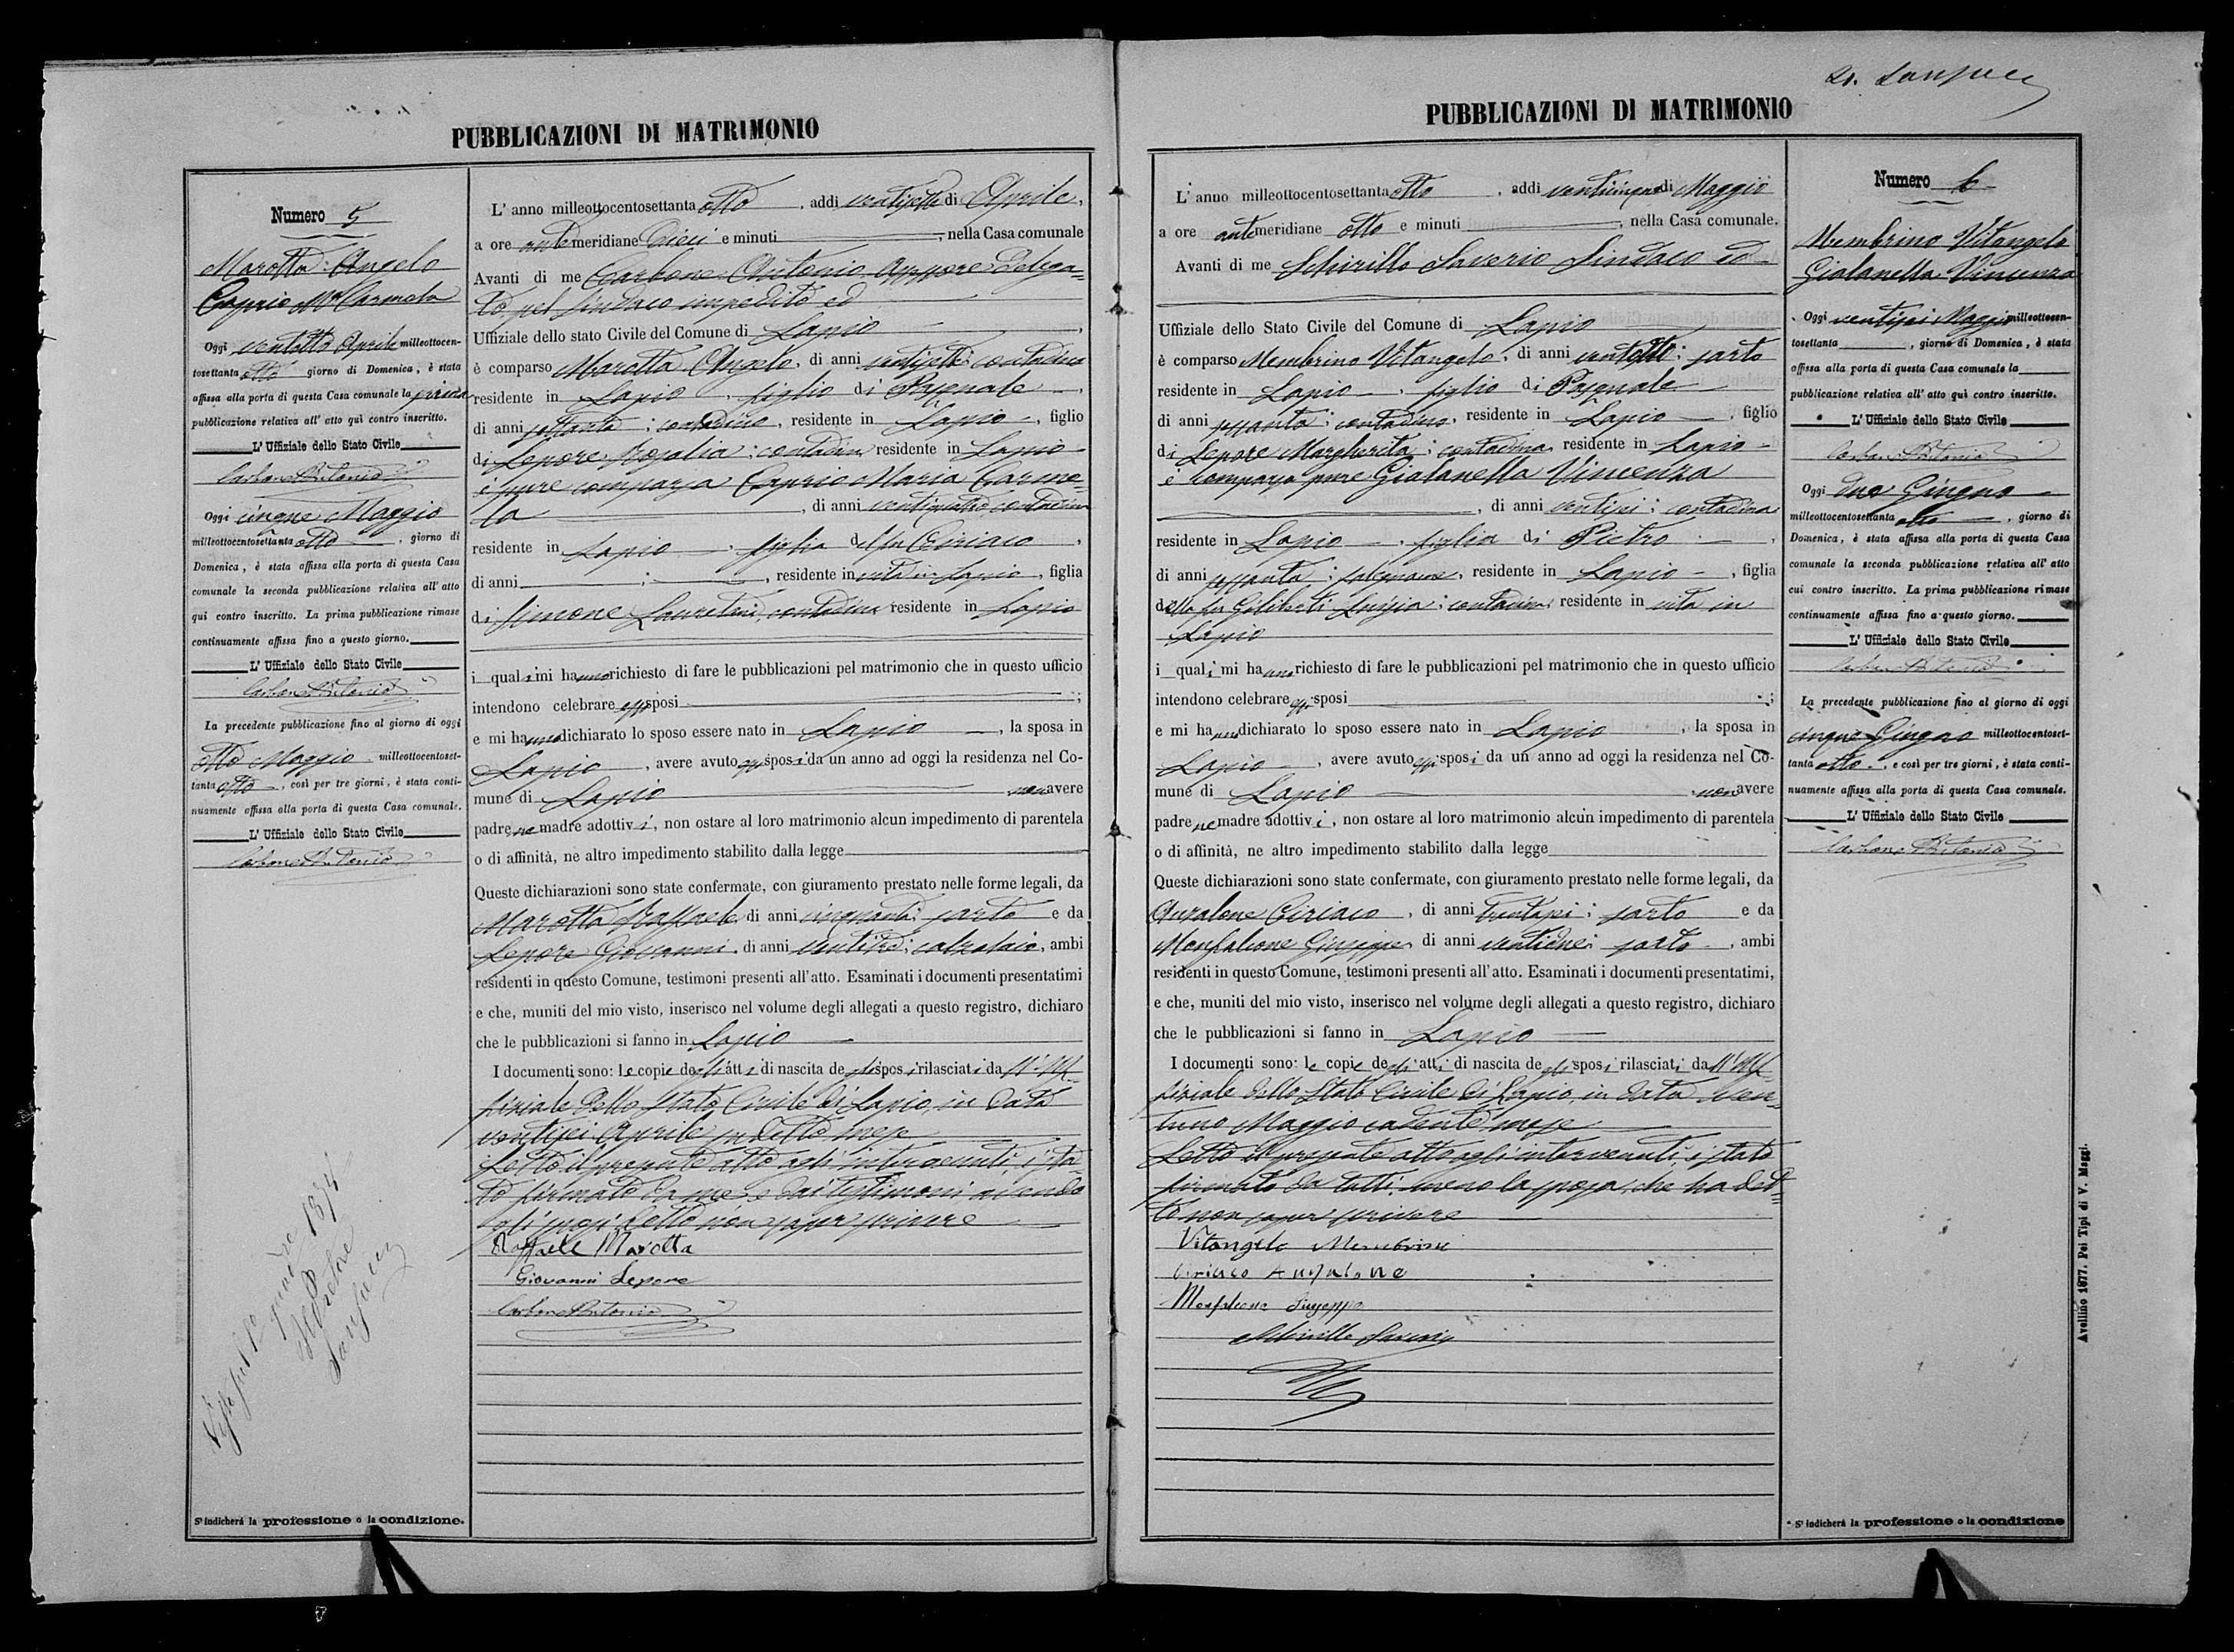 PUBBLICAZIONI DI MATRIMONIO
Numero 5
Marotta Angelo
Caprio Mª Carmela
Oggi ventotto Aprile milleottocen-
tosettanta otto giorno di Domenica, è stata
affissa alla porta di questa Casa comunale la prima
pubblicazione relativa all' atto quì contro inscritto.
L' Uffiziale dello Stato Civile
Carbone Antonio
Oggi cinque Maggio
milleottocentosettanta otto, giorno di
Domenica, è stata affissa alla porta di questa Casa
comunale la seconda pubblicazione relativa all' atto
quì contro inscritto. La prima pubblicazione rimase
continuamente affissa fino a questo giorno.
L' Uffiziale dello Stato Civile
Carbone Antonio
La precedente pubblicazione fino al giorno di oggi
otto Maggio milleottocentoset-
tanta otto, così per tre giorni, è stata conti-
nuamente affissa alla porta di questa Casa comunale.
L' Uffiziale dello Stato Civile
Carbone Antonio
Il Pretore
S' indicherà la professione o la condizione.
L' anno milleottocentosettanta otto, addi ventisette di Aprile,
a ore antemeridiane dieci e minuti, nella Casa comunale
Avanti di me Carbone Antonio Assessore Delega=
to, pel Sindaco impedito ed
Uffiziale dello stato Civile del Comune di Lapio
è comparso Marotta Angelo, di anni ventisette; contadino
residente in Lapio, figlio di Pasquale,
di anni settanta; contadino, residente in Lapio, figlio
di Lepore Rosalia; contadina residente in Lapio
è pure comparsa Caprio Maria Carme=
la, di anni ventiquattro contadina
residente in Lapio, figlia del fu Ciriaco,
di anni ; , residente in vita in Lapio, figlia
di Simone Lauretana, contadina residente in Lapio
i quali mi hanno richiesto di fare le pubblicazioni pel matrimonio che in questo ufficio
intendono celebrare essi sposi;
e mi hanno dichiarato lo sposo essere nato in Lapio, la sposa in
Lapio, avere avuto essi sposi da un anno ad oggi la residenza nel Co-
mune di Lapio non avere
padre ne madre adottivi, non ostare al loro matrimonio alcun impedimento di parentela
o di affinità, ne altro impedimento stabilito dalla legge
Queste dichiarazioni sono state confermate, con giuramento prestato nelle forme legali, da
Marotta Raffaele di anni cinquanta; sarto e da
Lepore Giovanni di anni ventitre; calzolaio, ambi
residenti in questo Comune, testimoni presenti all' atto. Esaminati i documenti presentatimi
e che, muniti del mio visto, inserisco nel volume degli allegati a questo registro, dichiaro
che le pubblicazioni si fanno in Lapio
I documenti sono: le copie degli atti di nascita degli sposi rilasciati dall'Uf=
fiziale dello Stato Civile di Lapio, in data
ventisei Aprile suddetto mese
Letto il presente atto agli intervenuti, è sta=
to firmato da me e dai testimoni avendo
gli sposi detto non saper scrivere
Raffaele Marotta
Giovanni Lepore
Carbone Antonio
PUBBLICAZIONI DI MATRIMONIO
L' anno milleottocentosettanta otto, addi venticinque di Maggio
a ore antemeridiane otto e minuti, nella Casa comunale.
Avanti di me Schirillo Saverio Sindaco ed
Uffiziale dello Stato Civile del Comune di Lapio
è comparso Membrino Vitangelo, di anni ventotto; sarto
residente in Lapio, figlio di Pasquale
di anni sessanta; contadino, residente in Lapio, figlio
di Lepore Margherita; contadina residente in Lapio
è comparsa pure Gialanella Vincenza
, di anni ventisei; contadina
residente in Lapio, figlia di Pietro,
di anni sessanta; falegname, residente in Lapio, figlia
della fu Giliberti Luigia; contadina residente in vita in
Lapio
i quali mi hanno richiesto di fare le pubblicazioni pel matrimonio che in questo ufficio
intendono celebrare essi sposi;
e mi hanno dichiarato lo sposo essere nato in Lapio, la sposa in
Lapio, avere avuto essi sposi da un anno ad oggi la residenza nel Co-
mune di Lapio non avere
padre ne madre adottivi, non ostare al loro matrimonio alcun impedimento di parentela
o di affinità, ne altro impedimento stabilito dalla legge
Queste dichiarazioni sono state confermate, con giuramento prestato nelle forme legali, da
Anzalone Ciriaco, di anni trentasei; sarto e da
Monfalcone Giuseppe di anni ventidue; sarto, ambi
residenti in questo Comune, testimoni presenti all' atto. Esaminati i documenti presentatimi,
e che, muniti del mio visto, inserisco nel volume degli allegati a questo registro, dichiaro
che le pubblicazioni si fanno in Lapio
I documenti sono: le copie degli atti di nascita degli sposi rilasciati dall'Uf=
fiziale dello Stato Civile di Lapio in data ven=
tuno Maggio cadente mese
Letto il presente atto agli intervenuti, è stato
firmato da tutti, meno la sposa, che ha det=
to non saper scrivere
Vitangelo Membrino
Ciriaco Anzalone
Monfalcone Giuseppe
Schirillo Saverio
Numero 6
Membrino Vitangelo
Gialanella Vincenza
Oggi ventisei Maggio milleottocen-
tosettanta, giorno di Domenica, è stata
affissa alla porta di questa Casa comunale la
pubblicazione relativa all' atto quì contro inscritto.
L' Uffiziale dello Stato Civile
Carbone Antonio
Oggi due Giugno
milleottocentosettanta otto, giorno di
Domenica, è stata affissa alla porta di questa Casa
comunale la seconda pubblicazione relativa all' atto
cui contro inscritto. La prima pubblicazione rimase
continuamente affissa fino a questo giorno.
L' Uffiziale dello Stato Civile
Carbone Antonio
La precedente pubblicazione fino al giorno di oggi
cinque Giugno milleottocentoset-
tanta otto, e così per tre giorni, è stata conti-
nuamente affissa alla porta di questa Casa comunale.
L' Uffiziale dello Stato Civile
Carbone Antonio
* S' indicherà la professione o la condizione
Avellino 1877. Pei Tipi di V. Maggi.